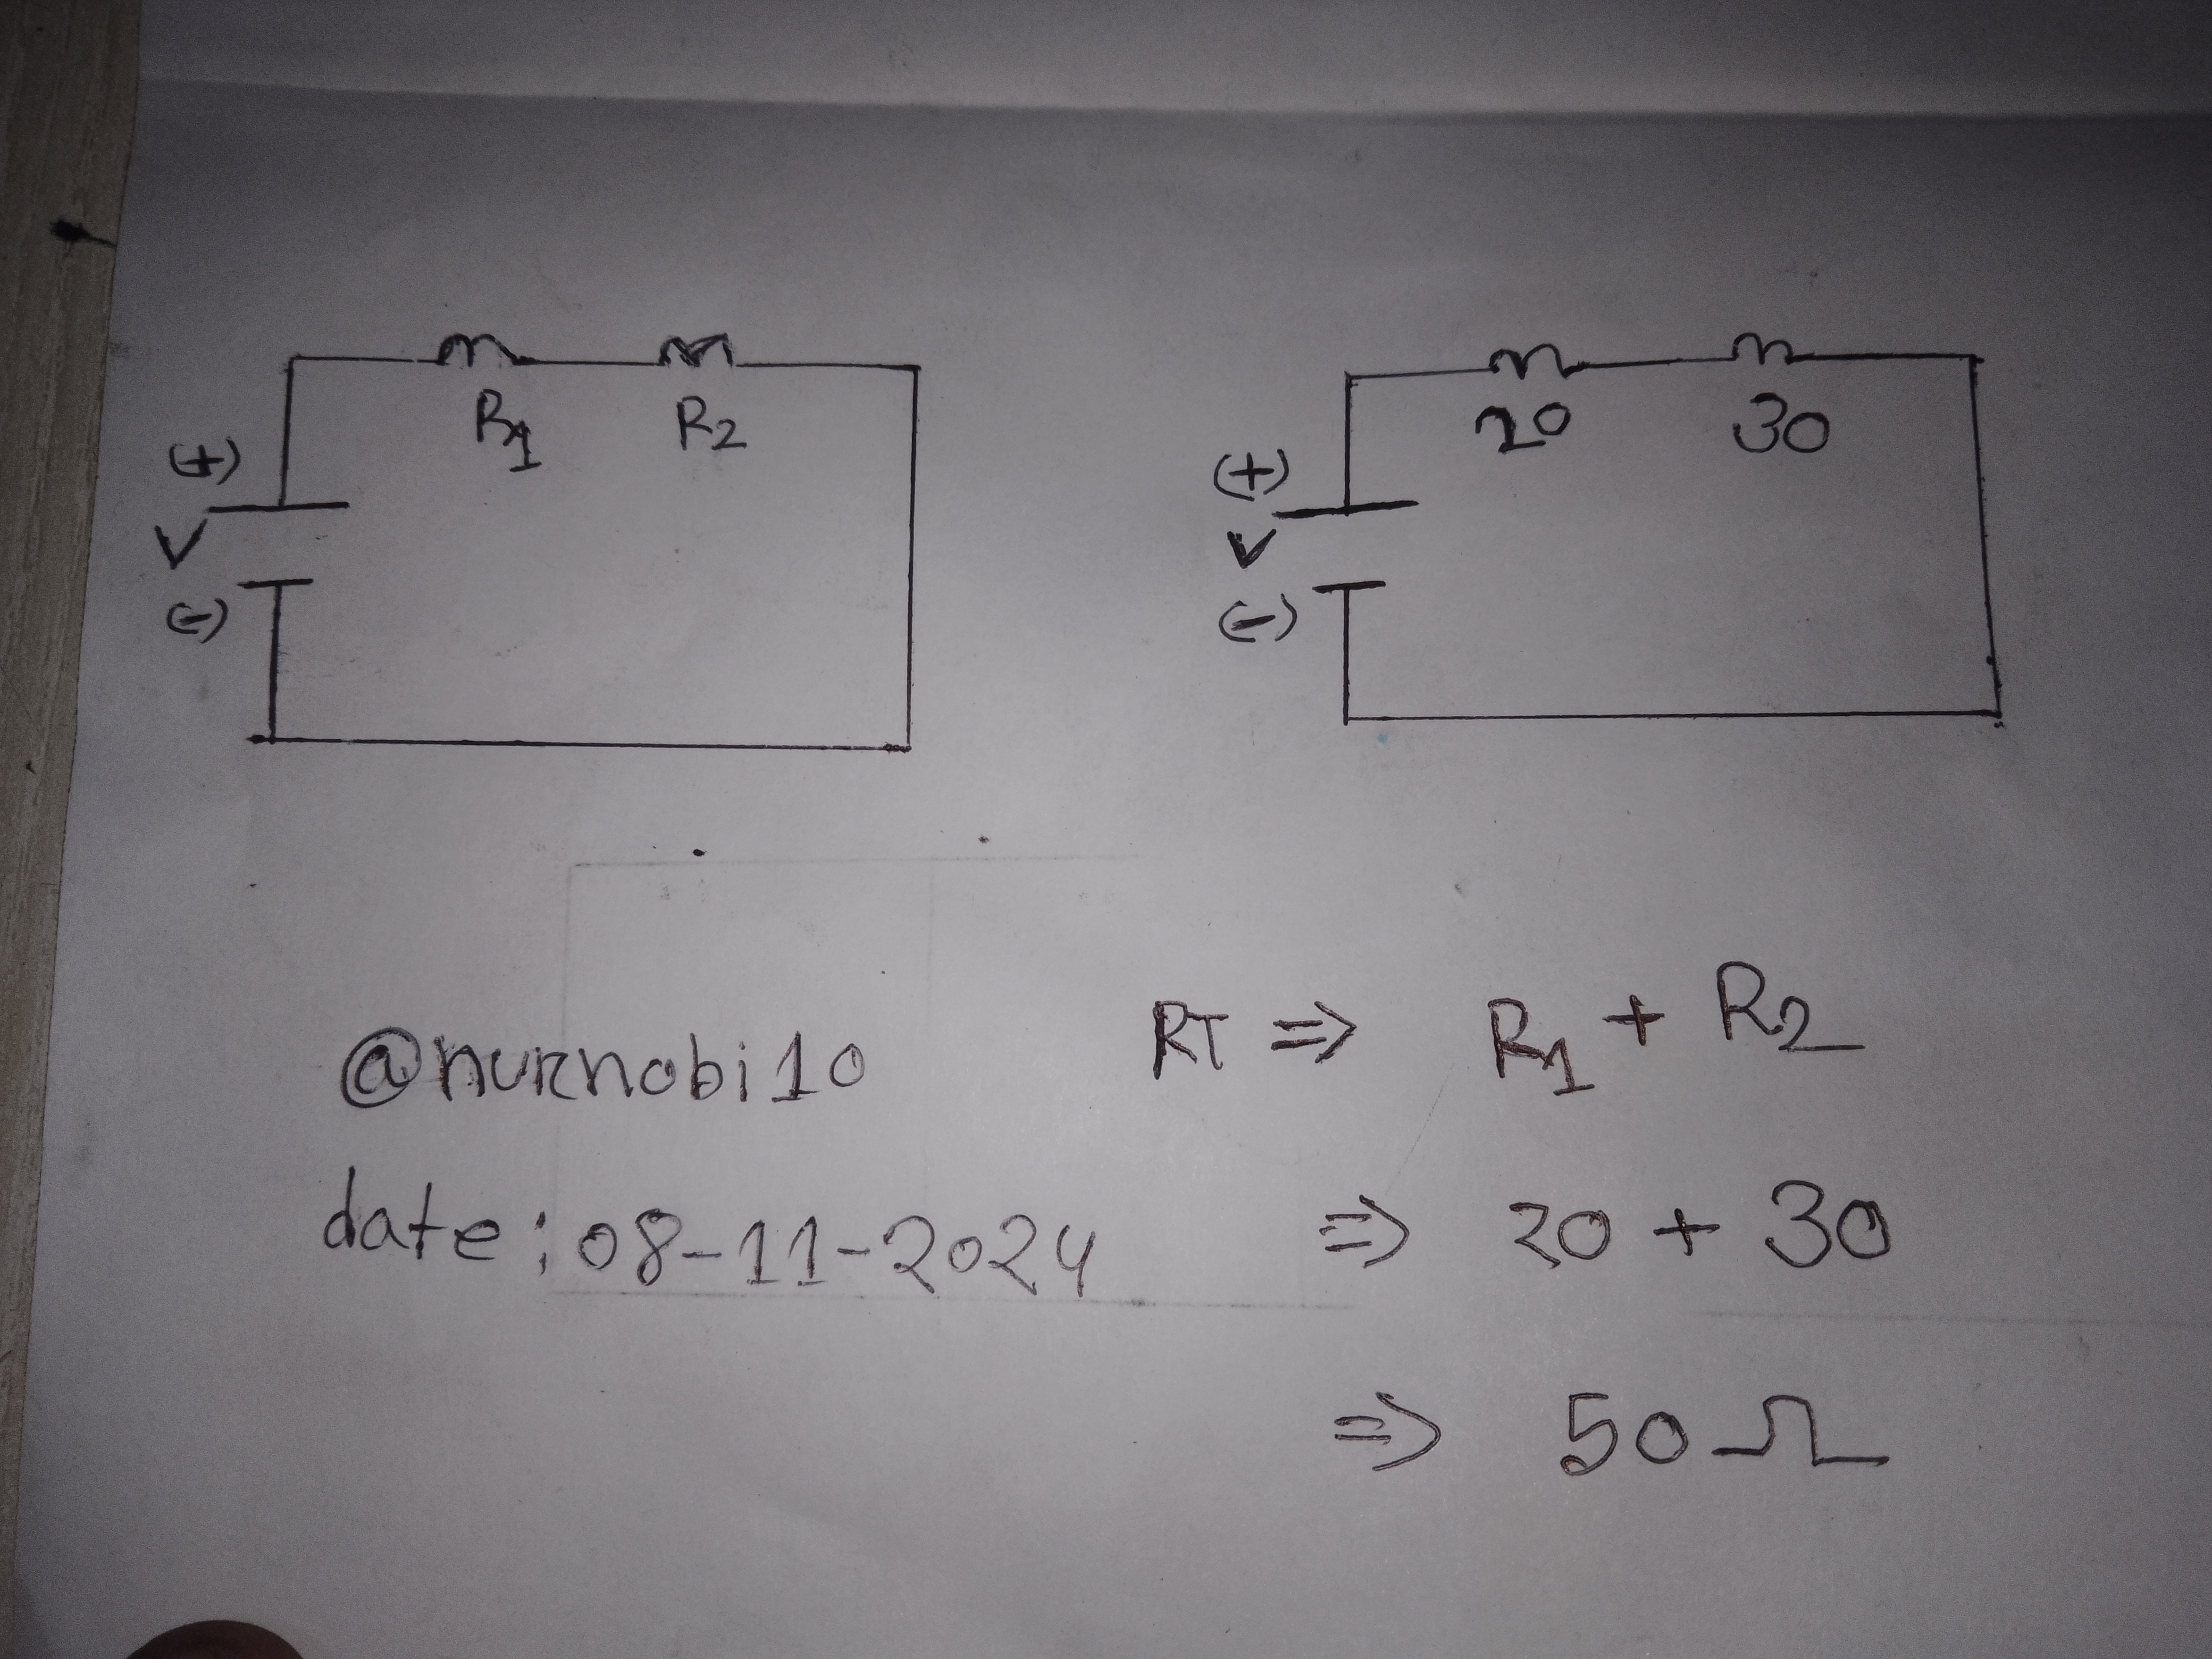 R1 R2
(+)
V
(-)
20 30
(+)
V
(-)
@nurnobi10
date: 08-11-2024
RT => R1 + R2
=> 20 + 30
=> 50 Ω